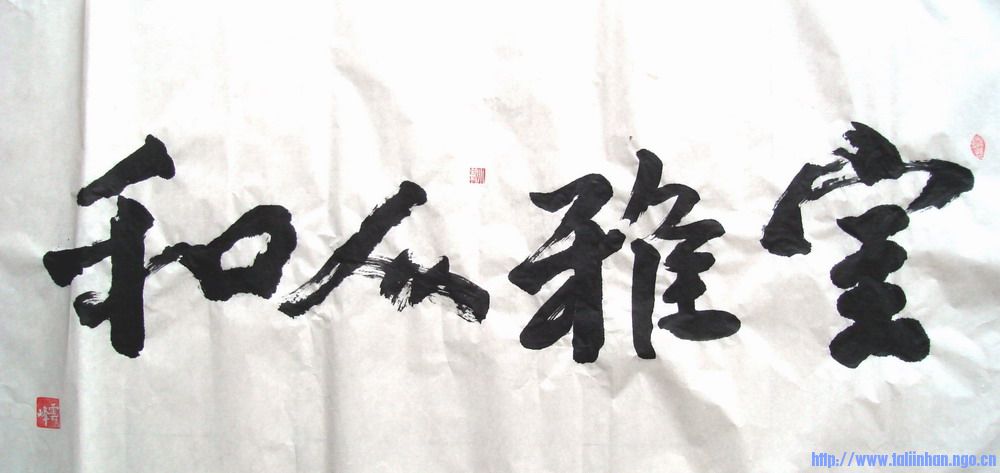 室雅人和
雲峰
http://www.taliinhan.ngo.cn